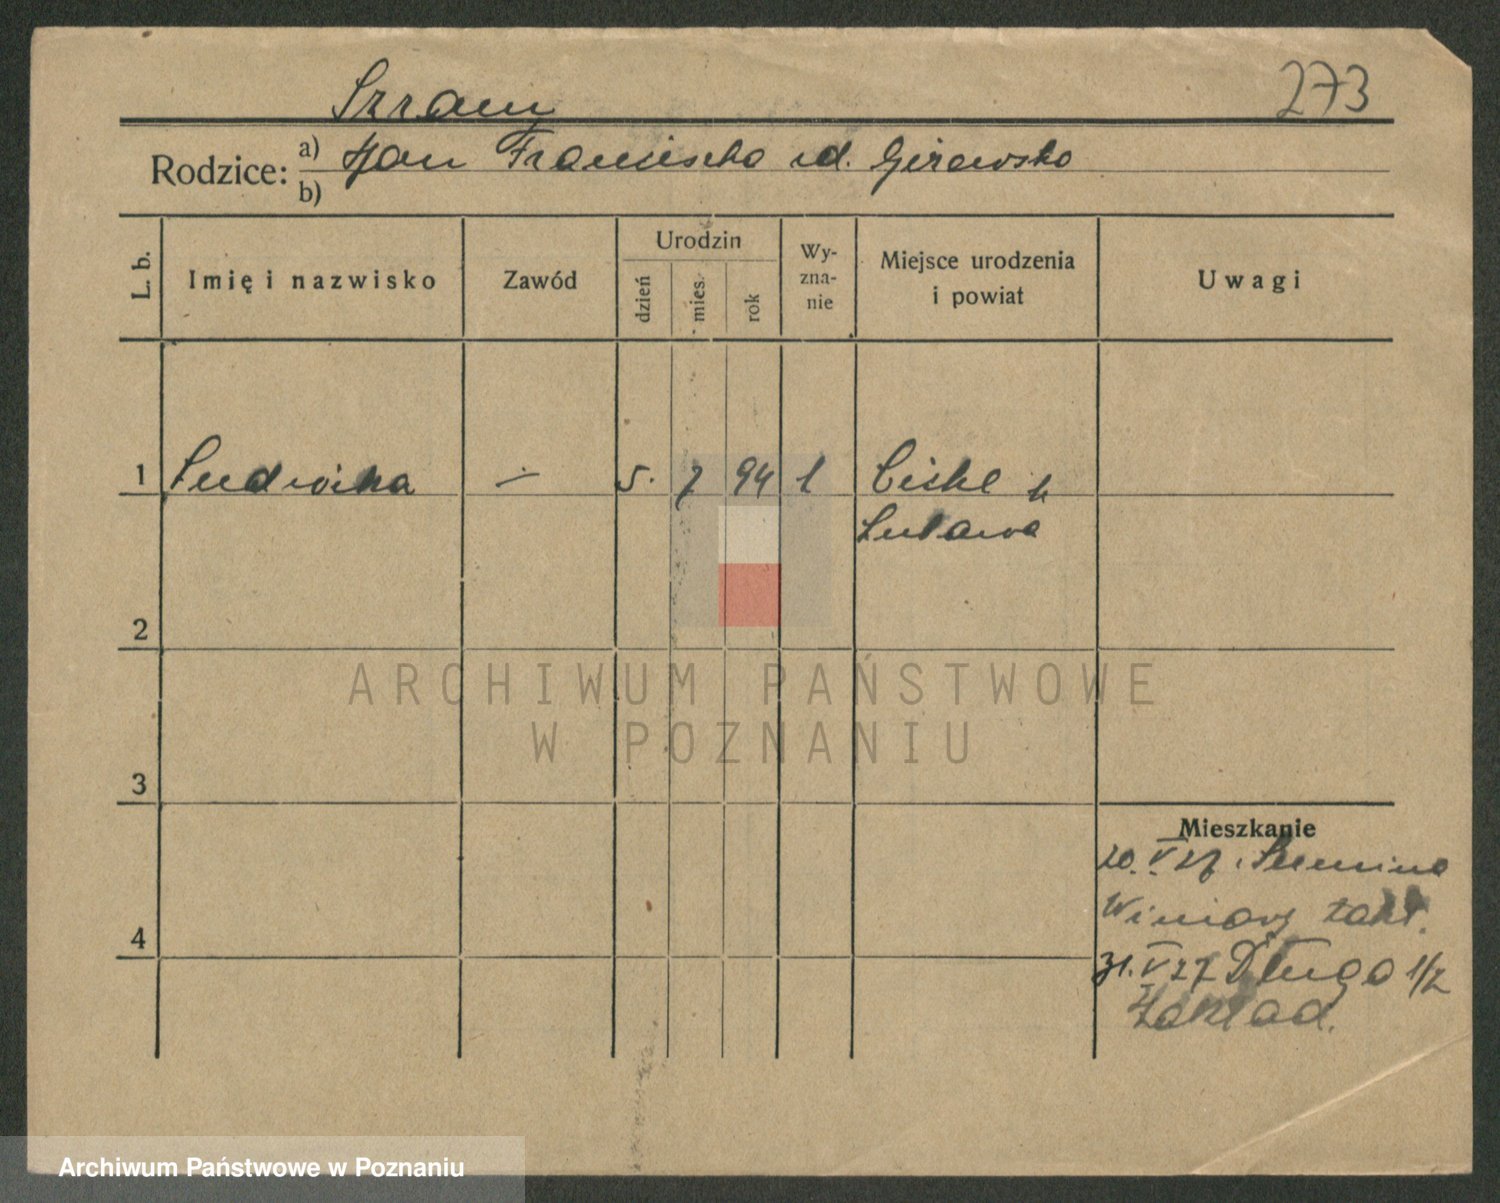 Szram
273
Rodzice: a) Jan Franciszka
b)
L. b.
Imię i nazwisko
Zawód
Urodzin
dzień
mies.
rok
Wy-
zna-
nie
Miejsce urodzenia
i powiat
Uwagi
1 Ludwika — 5. 7 94
2
3
4
Mieszkanie
20. V 27
Winiary Zakł.
31. V 27 Długa 1/2
Zakład.
ARCHIWUM PAŃSTWOWE
W POZNANIU
Archiwum Państwowe w Poznaniu